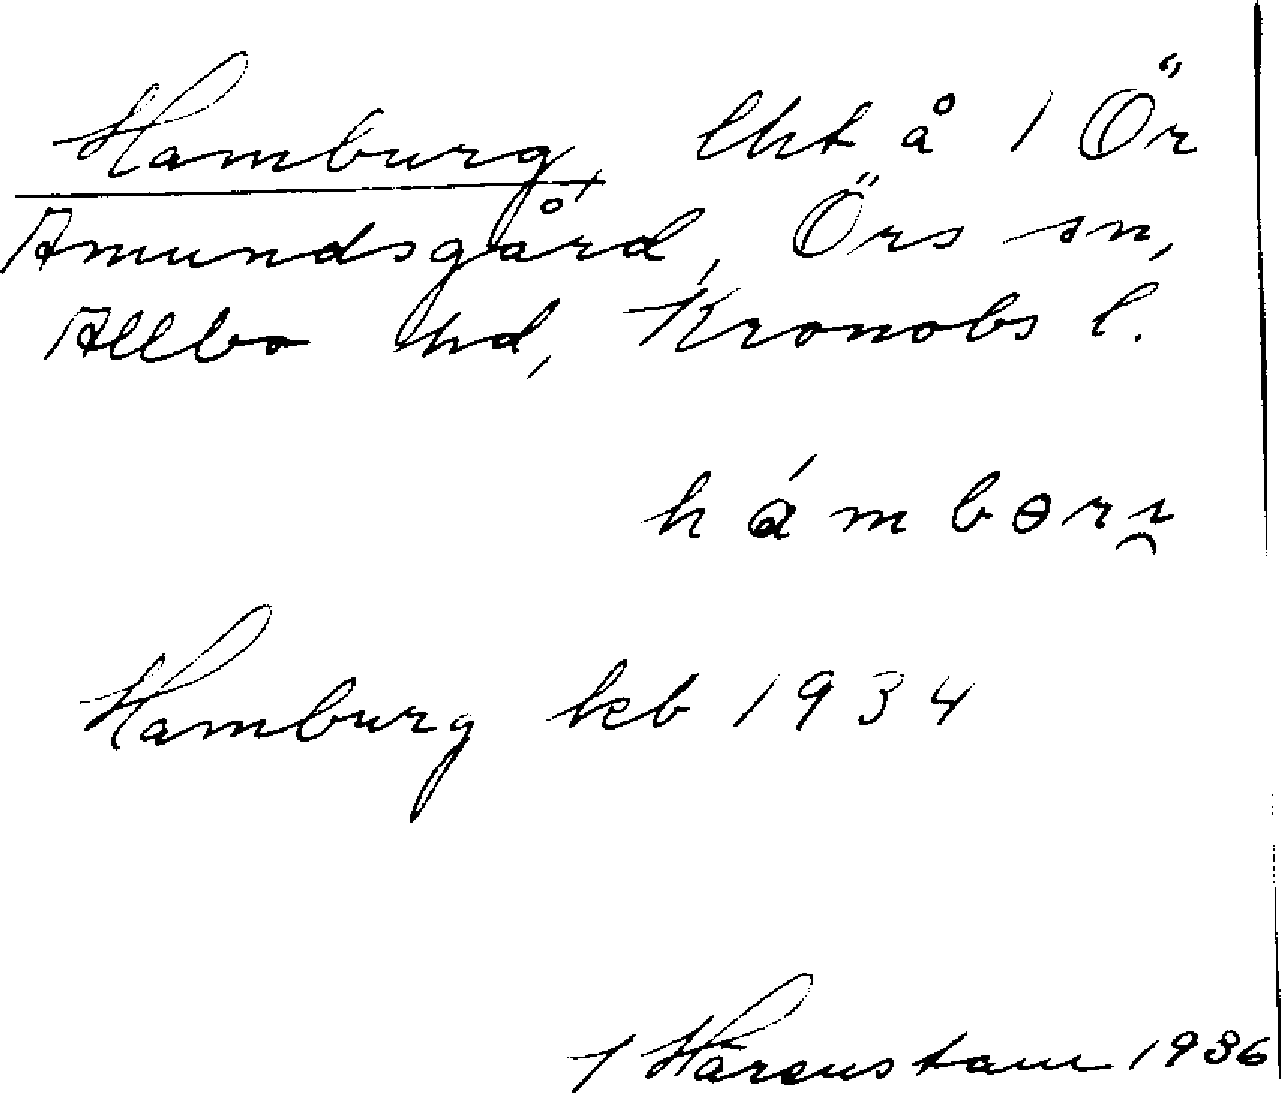 Hamburg, lht å 1 Ör
Amundsgård, Örs sn,
Allbo hd, Kronobs l.
hámborı̯
Hamburg kb 1934
Härenstam 1936